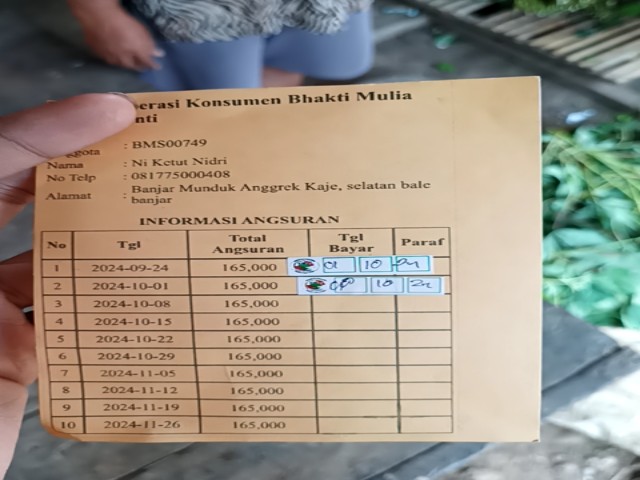 erasi Konsumen Bhakti Mulia
nti
ggota : BMS00749
Nama : Ni Ketut Nidri
No Telp : 081775000408
Alamat : Banjar Munduk Anggrek Kaje, selatan bale
banjar
INFORMASI ANGSURAN
No Tgl Total Angsuran Tgl Bayar Paraf
1 2024-09-24 165,000 01 10 24
2 2024-10-01 165,000 10 24
3 2024-10-08 165,000
4 2024-10-15 165,000
5 2024-10-22 165,000
6 2024-10-29 165,000
7 2024-11-05 165,000
8 2024-11-12 165,000
9 2024-11-19 165,000
10 2024-11-26 165,000